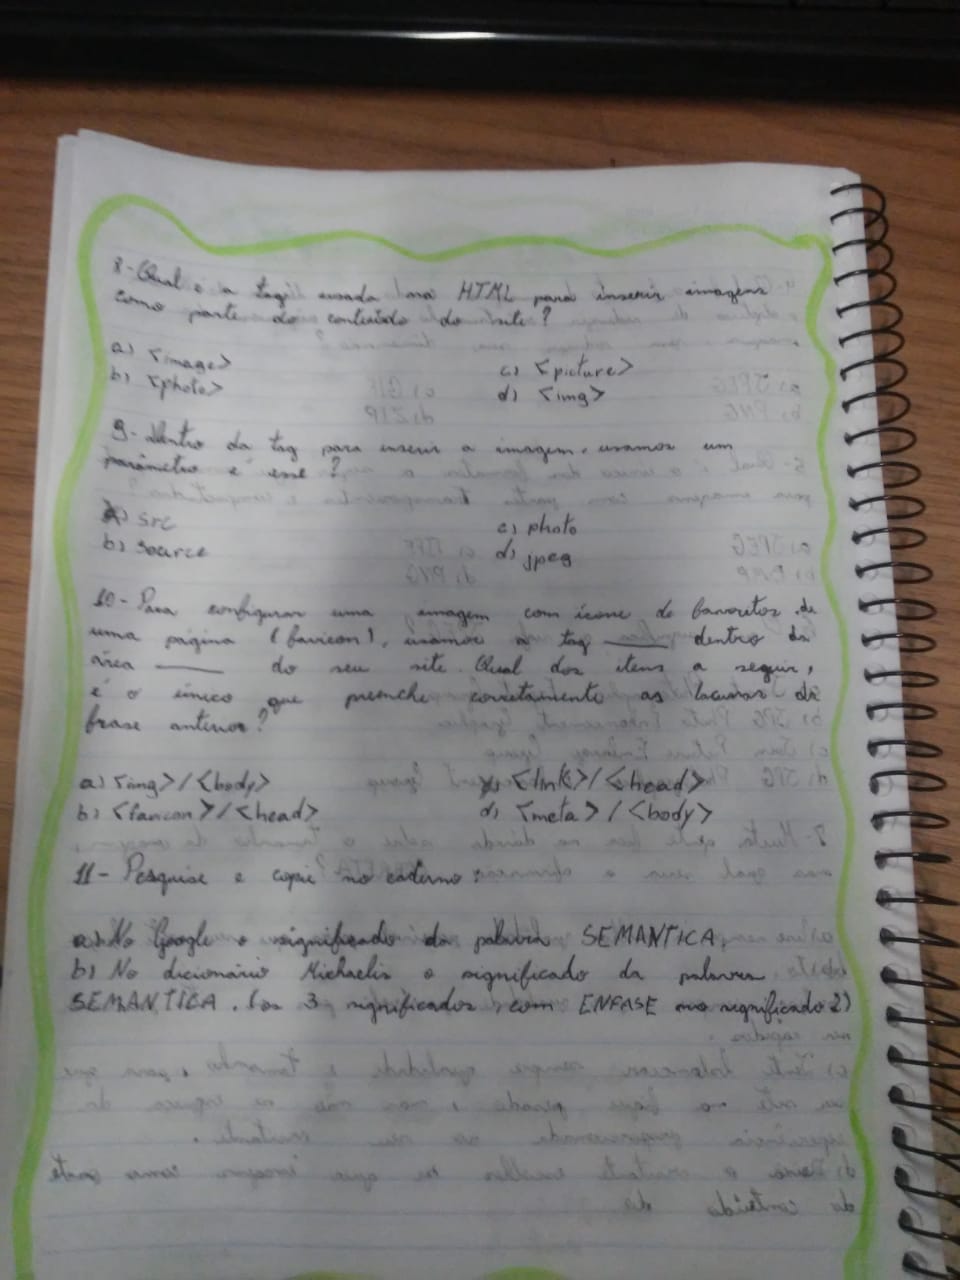 8- Qual é a tag usada na HTML para inserir imagens
como parte do conteúdo do site?
a) <image>
b) <photo>
c) <picture>
d) <img>
9- Dentro da tag para inserir a imagem, usamos um
parâmetro é esse?
a) src
b) source
c) photo
d) jpeg
10- Para configurar uma imagem com ícone de favoritos de
uma página (favicon), usamos a tag ____ dentro da
área ____ do seu site. Qual dos itens a seguir,
é o único que preenche corretamente as lacunas da
frase anterior?
a) <img>/<body>
b) <favicon>/<head>
c) <link>/<head>
d) <meta>/<body>
11- Pesquise e copie no caderno:
a) No Google o significado da palavra SEMANTICA,
b) No dicionário Michaelis o significado da palavra
SEMANTICA. (os 3 significados, com ENFASE no significado 2)